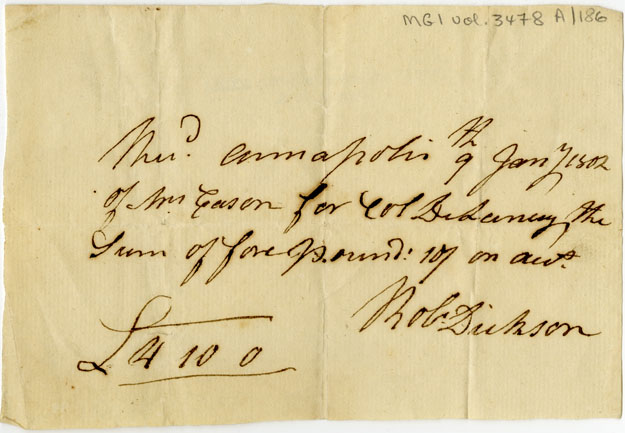 MG1 vol. 3478 A/186
annapolis 9th Jany 1802
of Mrs Eason for Col DeLancey the
Sum of fore Pound: 10/ on acct.
Robt Dickson
£4 10 0